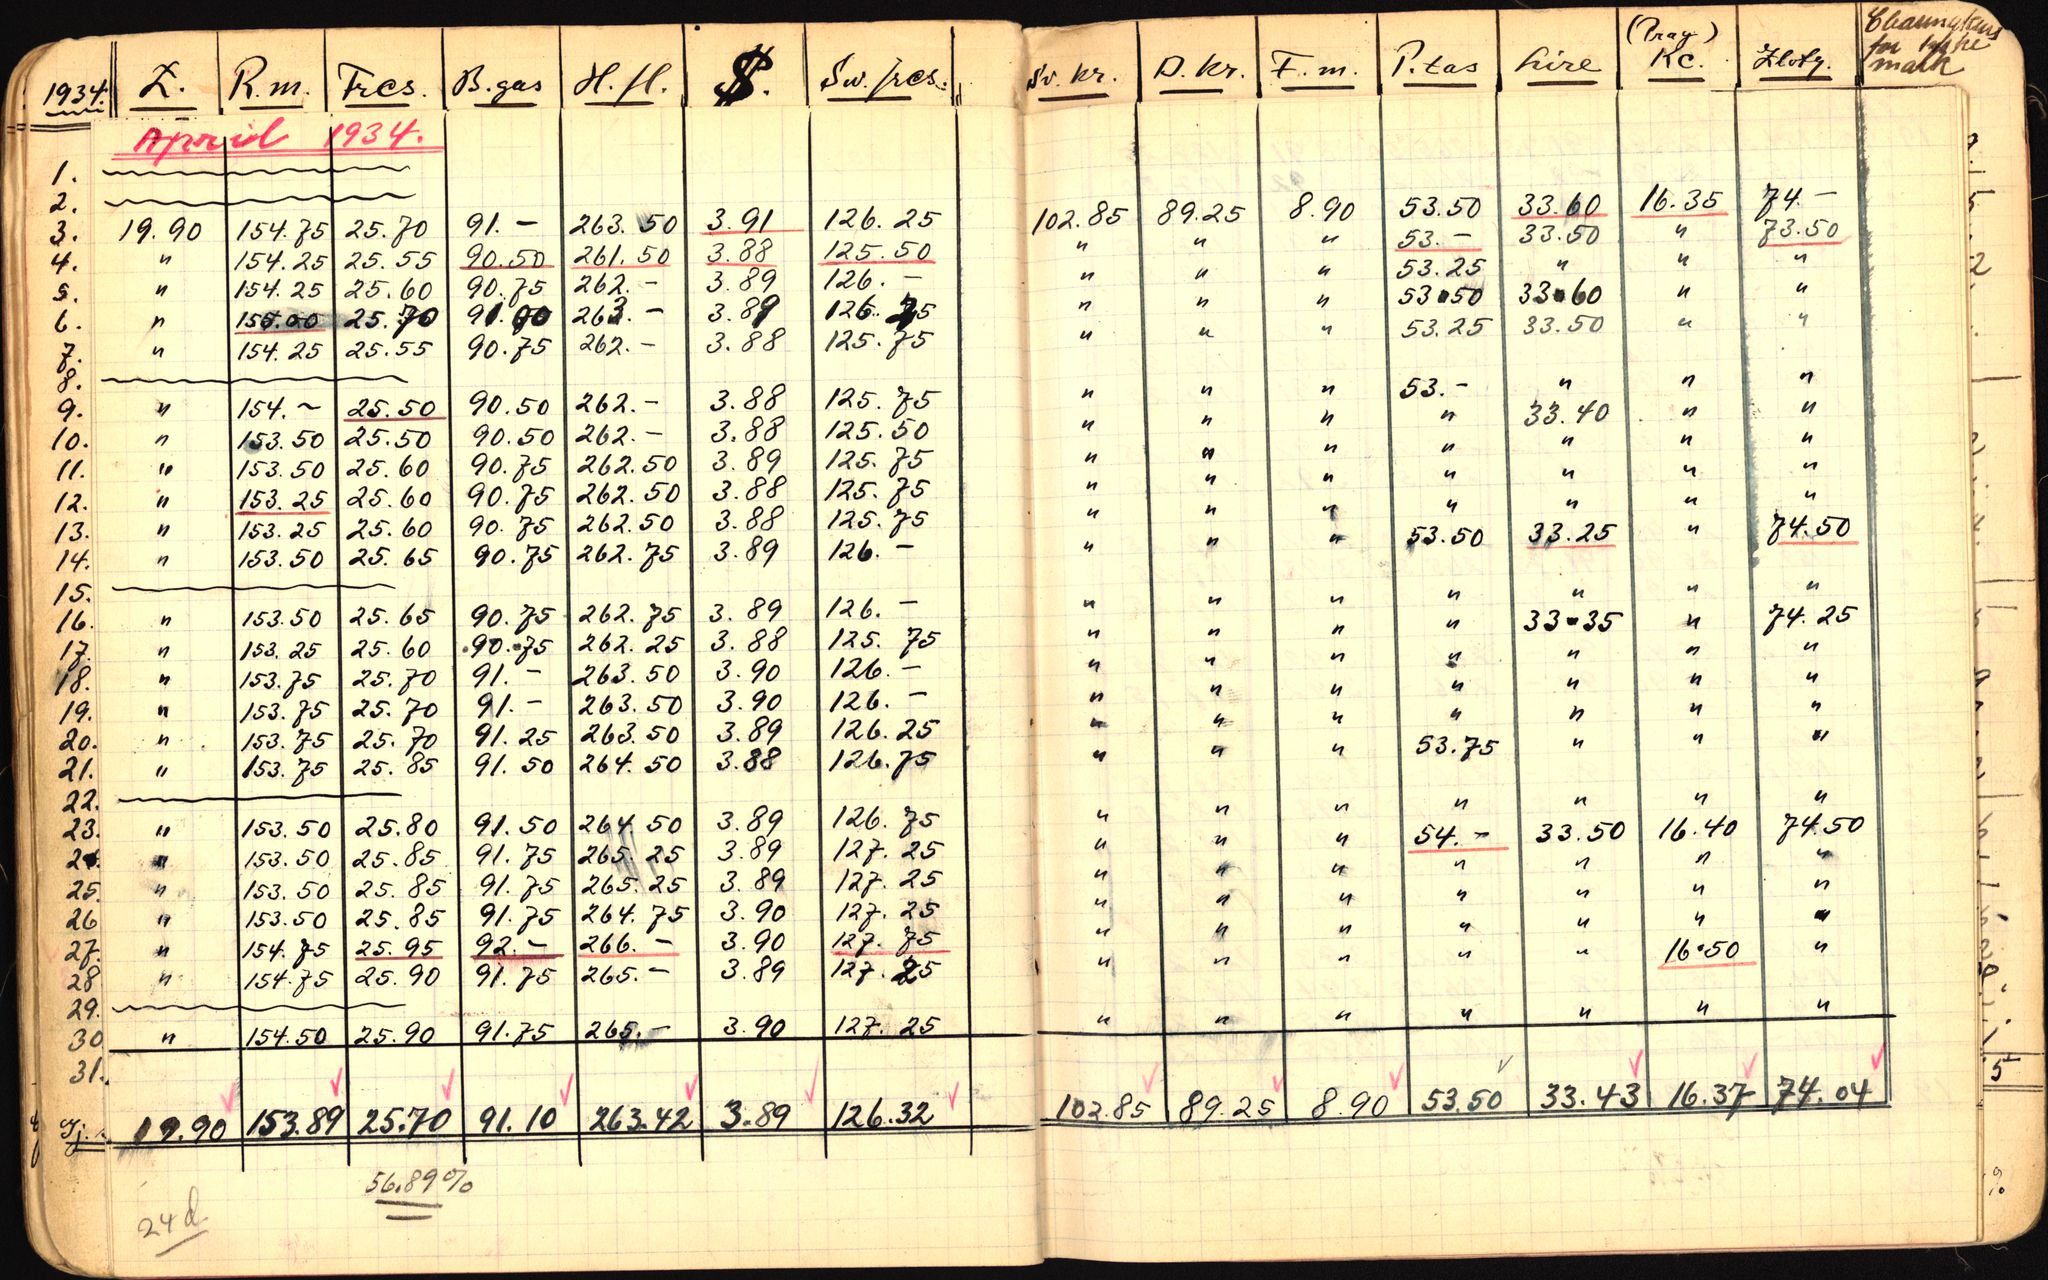 1934. £. R.m. Frcs. B.gas H.fl. $. Sw. frcs. Sv. kr. D. kr. F. m. P.tas Lire (Prag) Kc. Zloty.
for
mark
April 1934.
1.
2.
3. 19.90 154.75 25.70 91.- 263.50 3.91 126.25 102.85 89.25 8.90 53.50 33.60 16.35 74.-
4. " 154.25 25.55 90.50 261.50 3.88 125.50 " " " 53.- 33.50 " 73.50
5. " 154.25 25.60 90.75 262.- 3.89 126.- " " " 53.25 " " "
6. " 155.00 25.70 91.00 263.- 3.89 126.25 " " " 53.50 33.60 " "
7. " 154.25 25.55 90.75 262.- 3.88 125.75 " " " 53.25 33.50 " "
8.
9. " 154.- 25.50 90.50 262.- 3.88 125.75 " " " 53.- " " "
10. " 153.50 25.50 90.50 262.- 3.88 125.50 " " " " 33.40 " "
11. " 153.50 25.60 90.75 262.50 3.89 125.75 " " " " " " "
12. " 153.25 25.60 90.75 262.50 3.88 125.75 " " " " " " "
13. " 153.25 25.60 90.75 262.50 3.88 125.75 " " " " " " "
14. " 153.50 25.65 90.75 262.75 3.89 126.- " " " 53.50 33.25 " 74.50
15.
16. " 153.50 25.65 90.75 262.75 3.89 126.- " " " " " " "
17. " 153.25 25.60 90.75 262.25 3.88 125.75 " " " " 33.35 " 74.25
18. " 153.75 25.70 91.- 263.50 3.90 126.- " " " " " " "
19. " 153.75 25.70 91.- 263.50 3.90 126.- " " " " " " "
20. " 153.75 25.70 91.25 263.50 3.89 126.25 " " " " " " "
21. " 153.75 25.85 91.50 264.50 3.88 126.75 " " " 53.75 " " "
22.
23. " 153.50 25.80 91.50 264.50 3.89 126.75 " " " " " " "
24. " 153.50 25.85 91.75 265.25 3.89 127.25 " " " 54.- 33.50 16.40 74.50
25. " 153.50 25.85 91.75 265.25 3.89 127.25 " " " " " " "
26 " 153.50 25.85 91.75 264.75 3.90 127.25 " " " " " " "
27. " 154.75 25.95 92.- 266.- 3.90 127.75 " " " " " " "
28 " 154.75 25.90 91.75 265.- 3.89 127.25 " " " " " 16.50 "
29.
30 " 154.50 25.90 91.75 265.- 3.90 127.25 " " " " " " "
31.
19.90 153.89 25.70 91.10 263.42 3.89 126.32 102.85 89.25 8.90 53.50 33.43 16.37 74.04
56.89%
24 d.